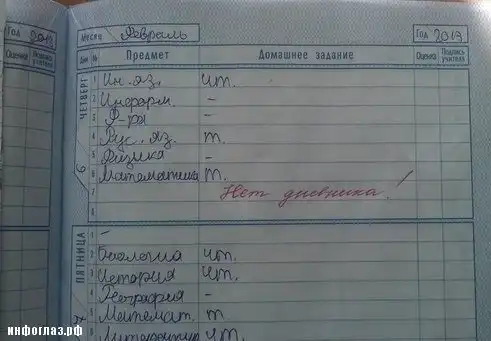 Год 2013 Месяц Февраль Год 2013
Оценка Подпись учителя Дни № Предмет Домашнее задание Оценка Подпись учителя
ЧЕТВЕРГ
6
1 Ин. яз. чт.
2 Информ. -
3 Ф-ра -
4 Рус. яз. т.
5 Физика -
6 Математика т.
7 Нет дневника!
8
ПЯТНИЦА
7
1 -
2 Биология чт.
3 История чт.
4 География -
5 Математ. т
6 Литература чт.
инфоглаз.рф